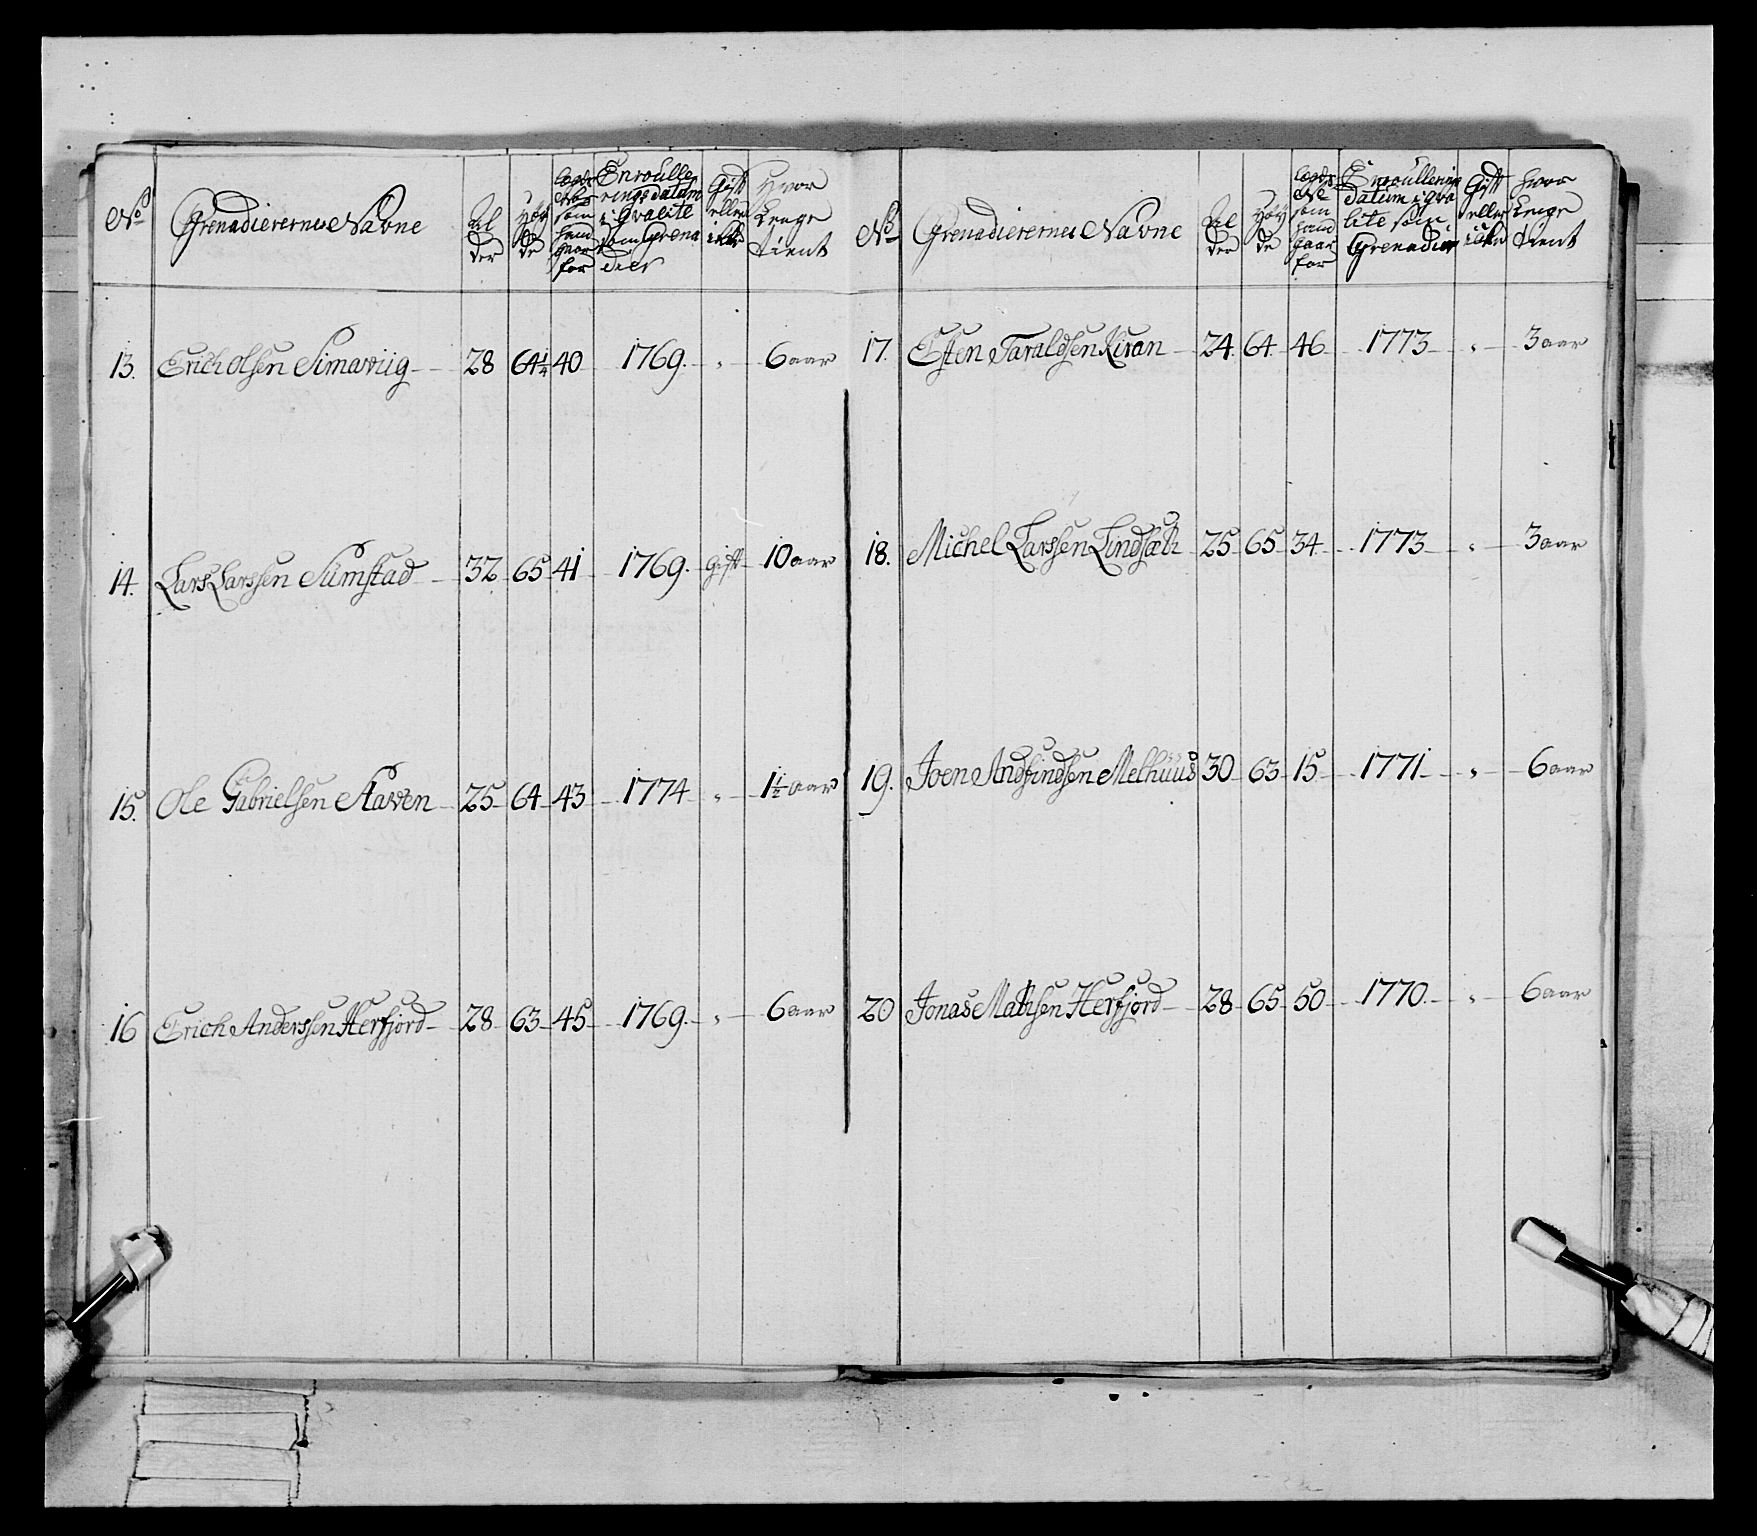 No
Grenadierernes Navne
Al
der
Høy
de
Legds
No
som
hand
gaar
for
Enroulle
rings datum
i Qvalite
som Grena
dier
Gift
eller
ikke
Hvor
Lenge
tient
13. Erich Olsen Simaviig 28 64 1/4 40 1769. " 6 aar
14. Lars Larssen Sumstad 32 65 41 1769. Gift 10 aar
15. Ole Gabrielsen Staven 25 64 43 1774 " 1 1/2 aar
16 Erich Anderssen Herfjord 28 63 45 1769. " 6 aar
No
Grenadierernes Navne
Al
der
Høy
de
Legds
No
som
hand
gaar
for
Enroullering
datum i qva
lite som
Grenadier
Gift
eller
ikke
Hvor
Lenge
tient
17. Esten Taraldsen Kiran 24 64 46 1773 " 3 aar
18. Michel Larssen Lindsæt 25 65 34 1773 " 3 aar
19. Joen Andfindsen Melhuus 30 63 15 1771 " 6 aar
20 Jonas Mathsen Herfjord 28 65 50 1770. " 6 aar